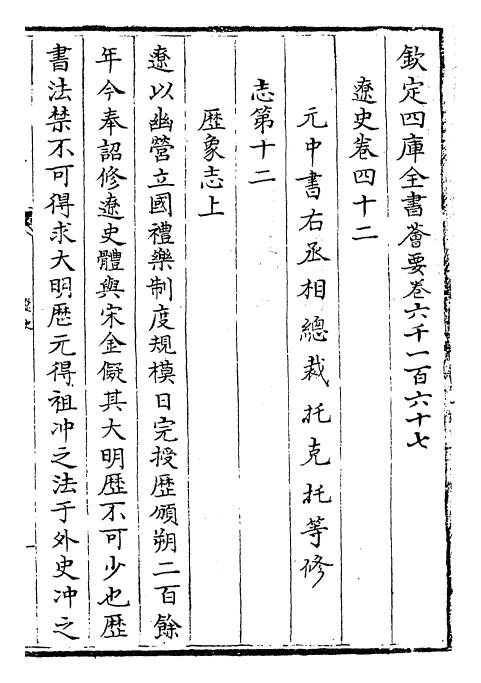 欽定四庫全書薈要卷六千一百六十七
遼史卷四十二
元中書右丞相總裁托克托等修
志第十二
歴象志上
遼以幽營立國禮樂制度規模日完授歴頒朔二百餘
年今奉詔修遼史體與宋金儗其大明歴不可少也歴
書法禁不可得求大明歴元得祖冲之法于外史冲之